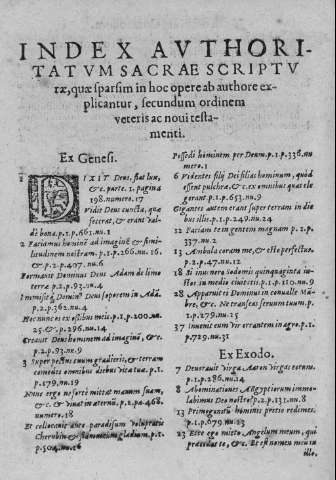 INDEX AVTHORI-
TATVM SACRAE SCRIPTV
ræ, quæ sparsim in hoc opere ab authore ex-
plicantur, secundum ordinem
veteris ac noui testa-
menti.
Ex Genesi.
1 DIXIT Deus, fiat lux,
&c. parte. 1. pagina
198. numero. 17
Vidit Deus cuncta, quæ
fecerat, & erant val-
dè bona. p. 1. p. 661. nu. 1
2 Faciamus hominẽ ad imaginẽ & simi-
litudinem nostram. p. 1. p. 266. nu. 16.
& p. 2. p. 407. nu. 6
Formauit Dominus Deus Adam de limo
terræ. p. 2. p. 93. nu. 4
Immisit Dominus Deus soporem in Adã.
p. 2. p. 362. nu. 4
Hoc nunc ex ossibus meis. p. 1. p. 200. nu.
25. & p. 296. nu. 14
Creauit Deus hominem ad imaginẽ, &c.
p. 2. p. 93. nu. 9
3 Super pectus tuum gradieris, & terram
comedes omnibus diebus vitæ tuæ. p. 1.
p. 179. nu. 19
Nunc ergo ne fortè mittat manum suam,
&c. & viuat in æternũ. p. 2. pa. 468.
numero. 18
Et collocauit ante paradisum voluptatis
Cherubin & flammeum gladium. p. 1.
p. 504. nu. 16
Possedi hominem per Deum. p. 1. p. 336. nu
mero. 1
6 Videntes filij Dei filias hominum, quòd
essent pulchræ, & c. ex omnibus quas ele
gerant. p. 1. p. 653. nu. 9
Gigantes autem erant super terram in die
bus illis. p. 1. p. 249. nu. 24
12 Faciam te in gentem magnam p. 1. p.
337. nu. 2
13 Ambula coram me, & esto perfectus.
p. 2. p. 47. nu. 12
18 Si inuenero Sodomis quinquaginta iu-
stos in medio ciuitatis. p. 1. p. 110. nu. 9
28 Apparuit ei Dominus in conualle Mã-
bre, &c. Ne transeas seruum tuum. p.
1. p. 279. nu. 25
37 Inuenit eum vir errantem in agro. p. 1.
p. 729. nu. 31
Ex Exodo.
7 Deuorauit virga Aaron virgas eorum.
p. 1. p. 286. nu. 14
8 Abominationes Ægyptiorum immo-
labimus Deo nostro? p. 2. p. 131. nu. 8
13 Primogenitũ hominis pretio redimes.
p. 1. p. 679. nu. 23
23 Ecce ego mitto Angelum meum, qui
præcedat te, & c. Et est nomen meum in
illo.